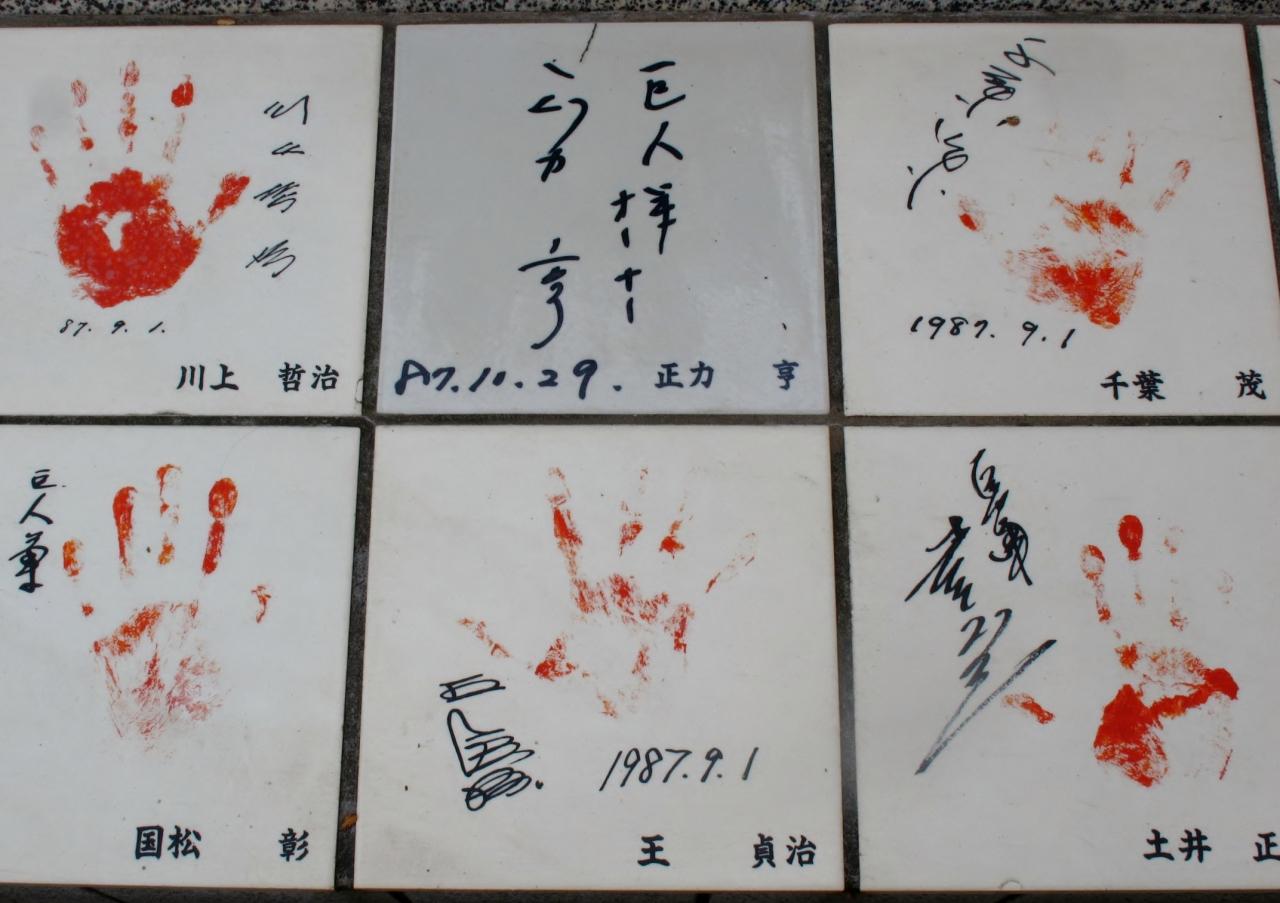 川上哲治
87. 9. 1.
川上 哲治
巨人
正力 亨
87.10.29.
正力 亨
千葉茂
1987. 9. 1
千葉 茂
巨人軍
国松 彰
1987.9.1
王 貞治
土井 正